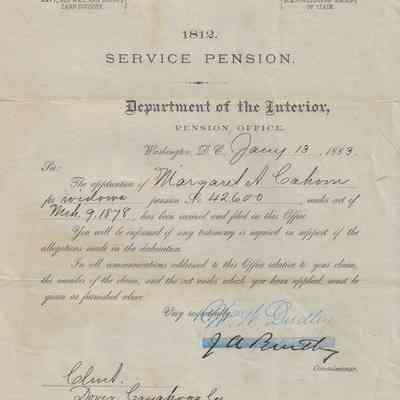 LAND DIVISION.
OF CLAIM.
1812.
SERVICE PENSION.
Department of the Interior,
PENSION OFFICE,
Washington, D. C., Jany 13, 1883.
Sir:
The application of Margaret A. Cahoon
for widows pension No 42600 under act of
Mch. 9, 1878, has been received and filed in this Office.
You will be informed if any testimony is required in support of the
allegations made in the declaration.
In all communications addressed to this Office relative to your claim,
the number of the claim, and the act under which you have applied, must be
given as furnished above.
Very respectfully,
W. W. Dudley
Commissioner.
Clmt.
Dover Cuyahoga Co